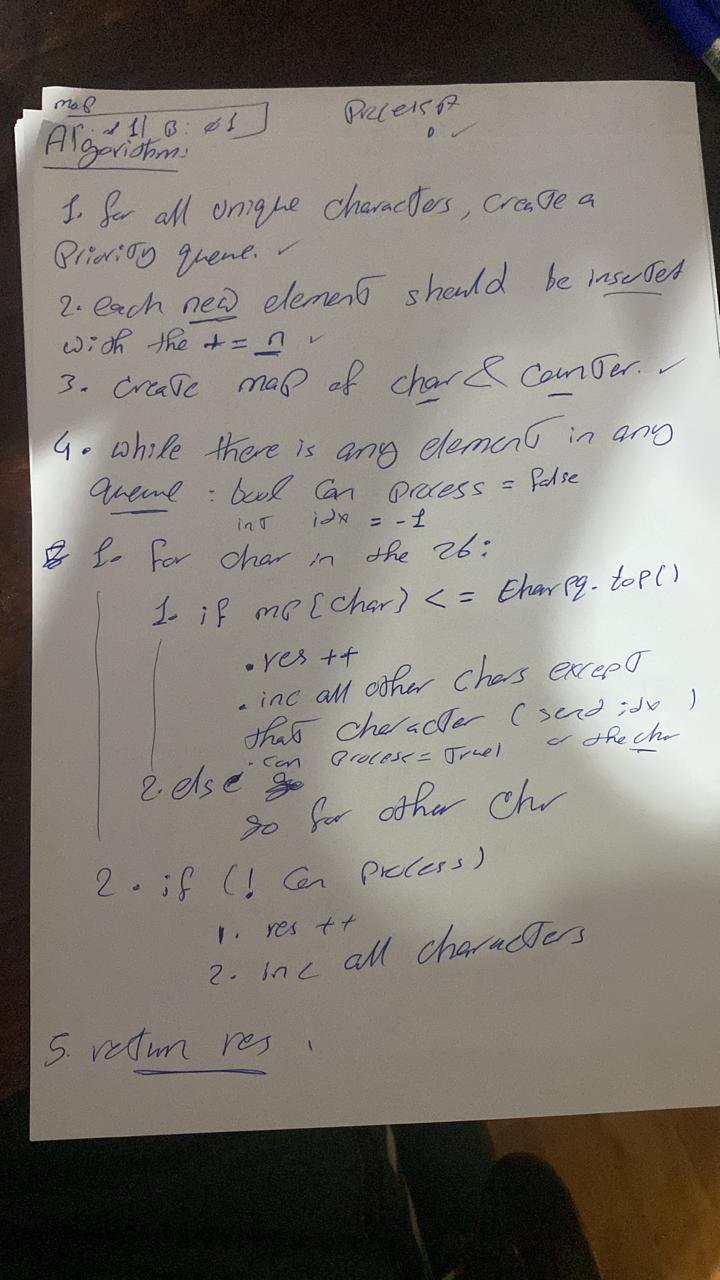 map
1| B: ∅1
Algorithm:
1. for all unique characters, create a
Priority queue. ✓
2. each new element should be inserted
with the += n ✓
3. create map of char & counter. ✓
4. while there is any element in any
queue : bool Can Process = false
int idx = -1
1. for char in the 26:
1. if mp[char] <= Charpq.top()
. res ++
. inc all other chars except
that character (send idx)
. can Process = True or the char
2. else
go for other chr
2. if (! Can Process)
1. res ++
2. inc all characters
5. return res.